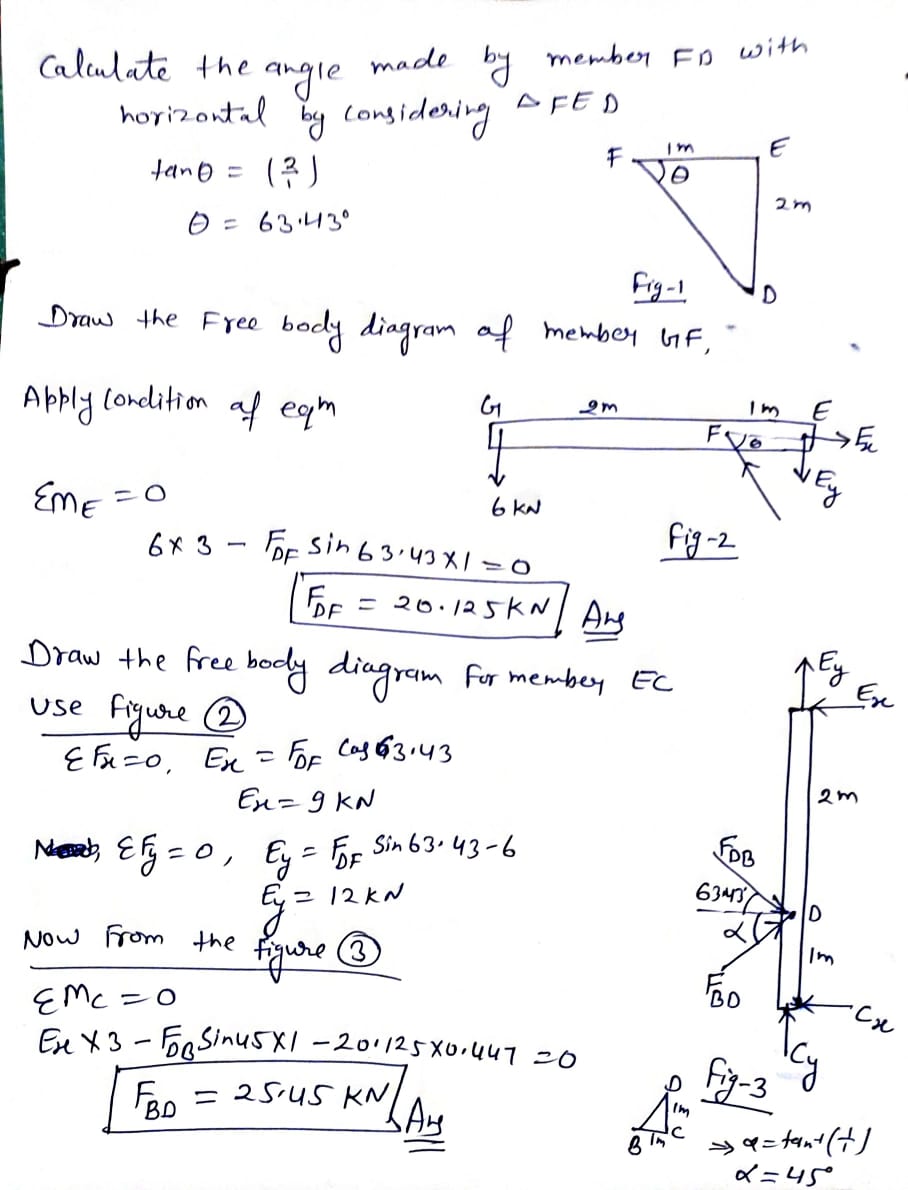 Calculate the angle made by member FD with
horizontal by considering Δ FED
tanθ = (2/1)
θ = 63.43°
F 1m E
θ
2m
D
Fig-1
Draw the Free body diagram of member GF,
Apply Condition of eqm
G 2m 1m E
F θ Ex
Ey
6 kN
Fig-2
ΣME = 0
6×3 - FDF Sin63.43×1 = 0
FDF = 20.125KN Ans
Draw the free body diagram for member EC
Use figure ②
ΣFx=0, Ex = FDF Cos63.43
Ex = 9 KN
ΣFy = 0, Ey = FDF Sin63.43-6
Ey = 12KN
Now From the figure ③
ΣMC = 0
Ex×3 - FDB Sin45×1 - 20.125×0.447 = 0
FBD = 25.45 KN Ans
Ey
Ex
2m
FDB
63.43°
D
α
1m
FBD
Cx
Cy
Fig-3
D
1m
B 1m C
⇒ α = tan-1(1/1)
α = 45°